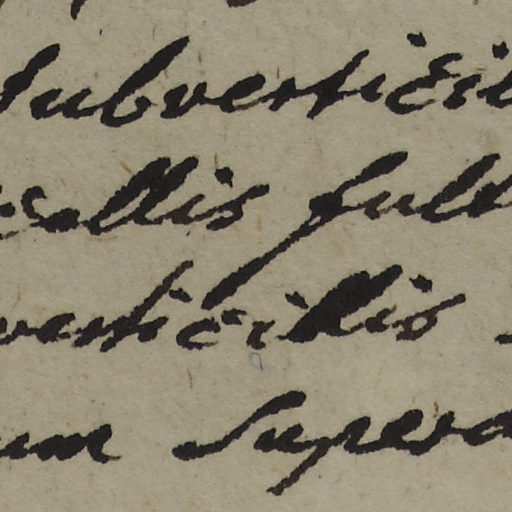 subverticil
cellis fult
verticillis
um supera